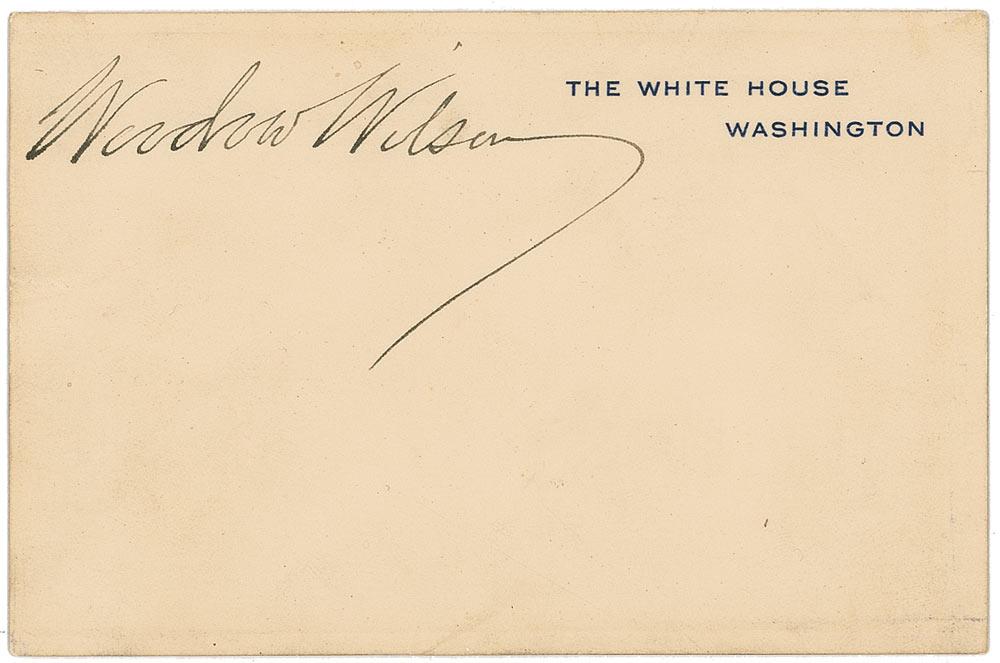 Woodrow Wilson
THE WHITE HOUSE
WASHINGTON